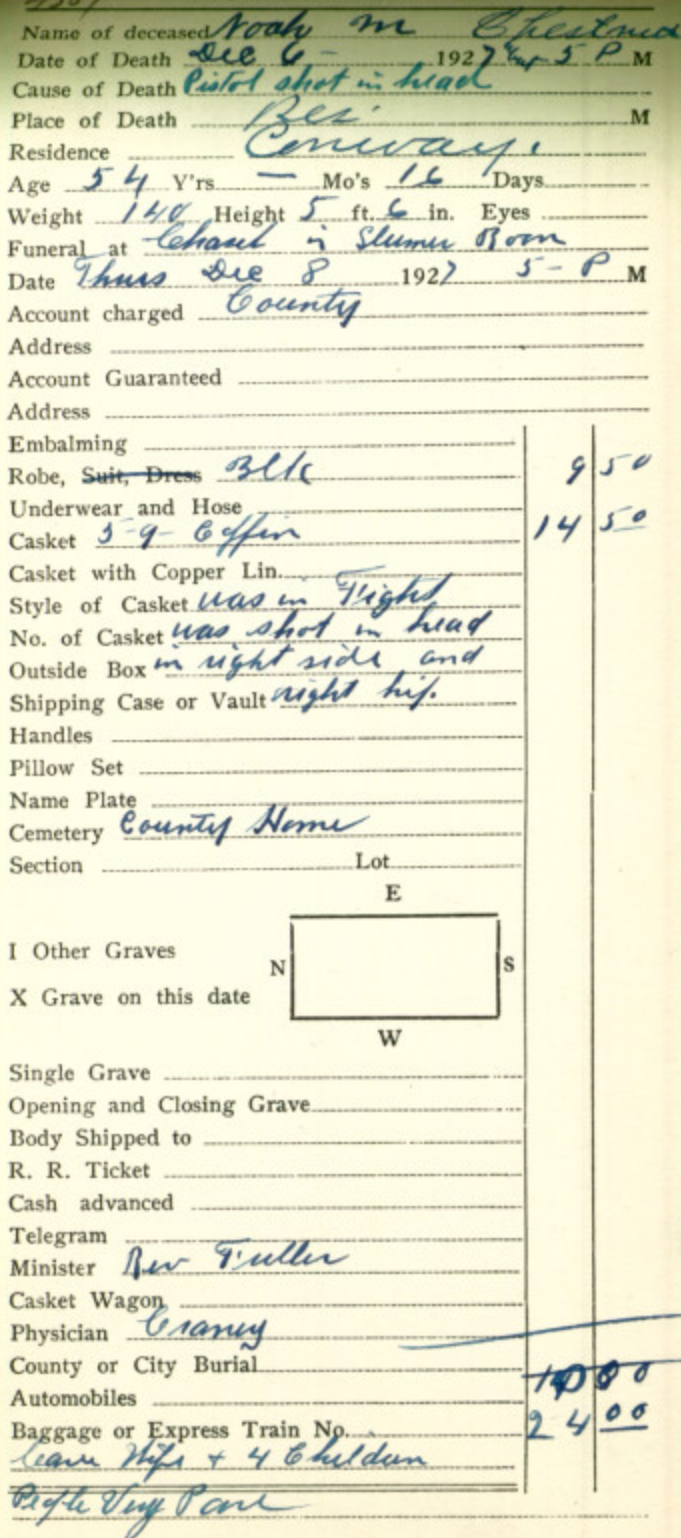 Name of deceased Noah M Chestnut
Date of Death Dec 6 - 1927 5 P M
Cause of Death Pistol shot in head
Place of Death Res. M
Residence Conway.
Age 54 Y'rs — Mo's 16 Days
Weight 140 Height 5 ft. 6 in. Eyes
Funeral at Chapel in Slumer Room
Date Thurs Dec 8 1927 5 - P M
Account charged County
Address
Account Guaranteed
Address
Embalming
Robe, Suit, Dress Blk 9 50
Underwear and Hose
Casket 5-9- Coffin 14 50
Casket with Copper Lin.
Style of Casket was in Fight
No. of Casket was shot in head
Outside Box in right side and
Shipping Case or Vault right hip.
Handles
Pillow Set
Name Plate
Cemetery County Home
Section Lot
E
I Other Graves
N S
X Grave on this date
W
Single Grave
Opening and Closing Grave
Body Shipped to
R. R. Ticket
Cash advanced
Telegram
Minister Rev Fuller
Casket Wagon
Physician
County or City Burial
Automobiles
Baggage or Express Train No. 24 00
Leave Wife + 4 Children
People Very Poor